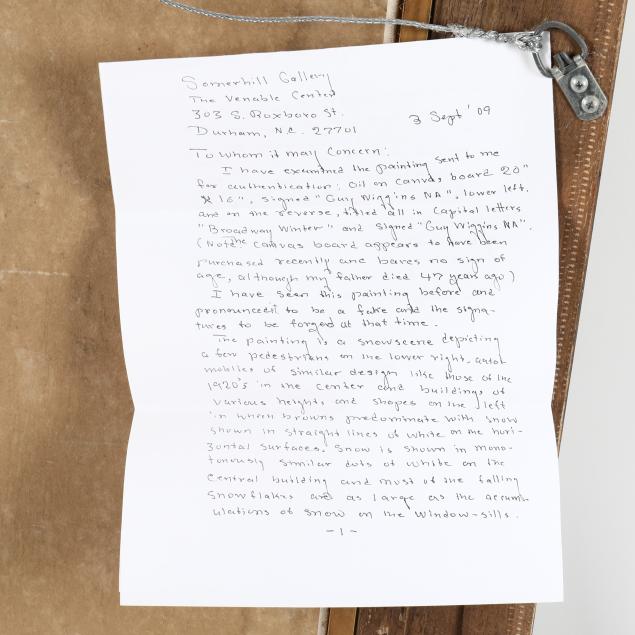 Somerhill Gallery
The Venable Center
303 S. Roxboro St.
Durham, N.C. 27701
3 Sept '09
To whom it may Concern:
I have examined the painting sent to me
for authentication: oil on canvas board 20"
x 16", signed "Guy Wiggins NA", lower left.
and on the reverse, titled all in capital letters
"Broadway Winter" and signed "Guy Wiggins NA".
(Note: the canvas board appears to have been
purchased recently and bares no sign of
age, although my father died 47 years ago)
I have seen this painting before and
pronounced it to be a fake and the signa-
tures to be forged at that time.
The painting is a snowscene depicting
a few pedestrians on the lower right, auto-
mobiles of similar design like those of the
1920's in the center and buildings of
various heights and shapes on the left
in which browns predominate with snow
shown in straight lines of white on the hori-
zontal surfaces. Snow is shown in mono-
tonously similar dots of white on the
central building and most of the falling
snowflakes are as large as the accum-
ulations of snow on the window-sills.
-1-